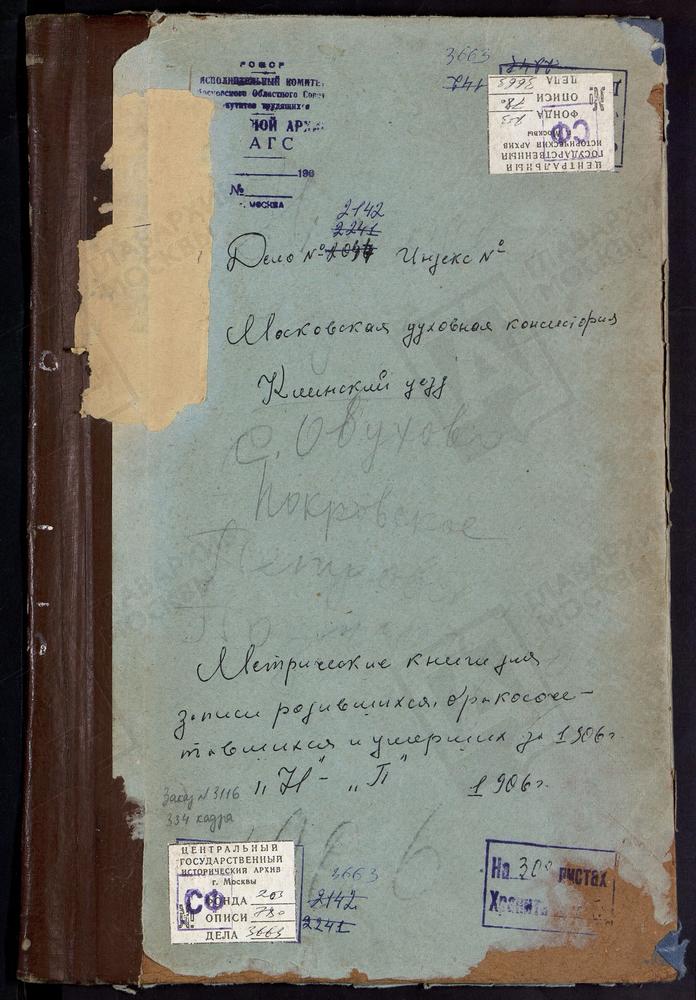 РСФСР
ИСПОЛНИТЕЛЬНЫЙ КОМИТЕ
Московского Областного Сове
путатов трудящихся
НОЙ АРХИ
АГС
196
№
г. МОСКВА
3663
2142
ЦЕНТРАЛЬНЫЙ
ГОСУДАРСТВЕННЫЙ
ИСТОРИЧЕСКИЙ АРХИВ
г. Москвы
СФ
ФОНДА 203
№ ОПИСИ 780
ДЕЛА 3663
2142
2241
Дело № Индекс №
Московская духовная консистория
Клинский уезд
С. Обухово
Покровское
Петровс
Метрические книги для
записи родившихся, бракосоче-
тавшихся и умерших за 1906 г.
"Н" - "П" 1906 г.
Заказ N 3116
334 кадра
1906
ЦЕНТРАЛЬНЫЙ
ГОСУДАРСТВЕННЫЙ
ИСТОРИЧЕСКИЙ АРХИВ
г. Москвы
СФ
ФОНДА 203
№ ОПИСИ 780
ДЕЛА 3663
3663
2142
2241
На 300 листах
Хранить